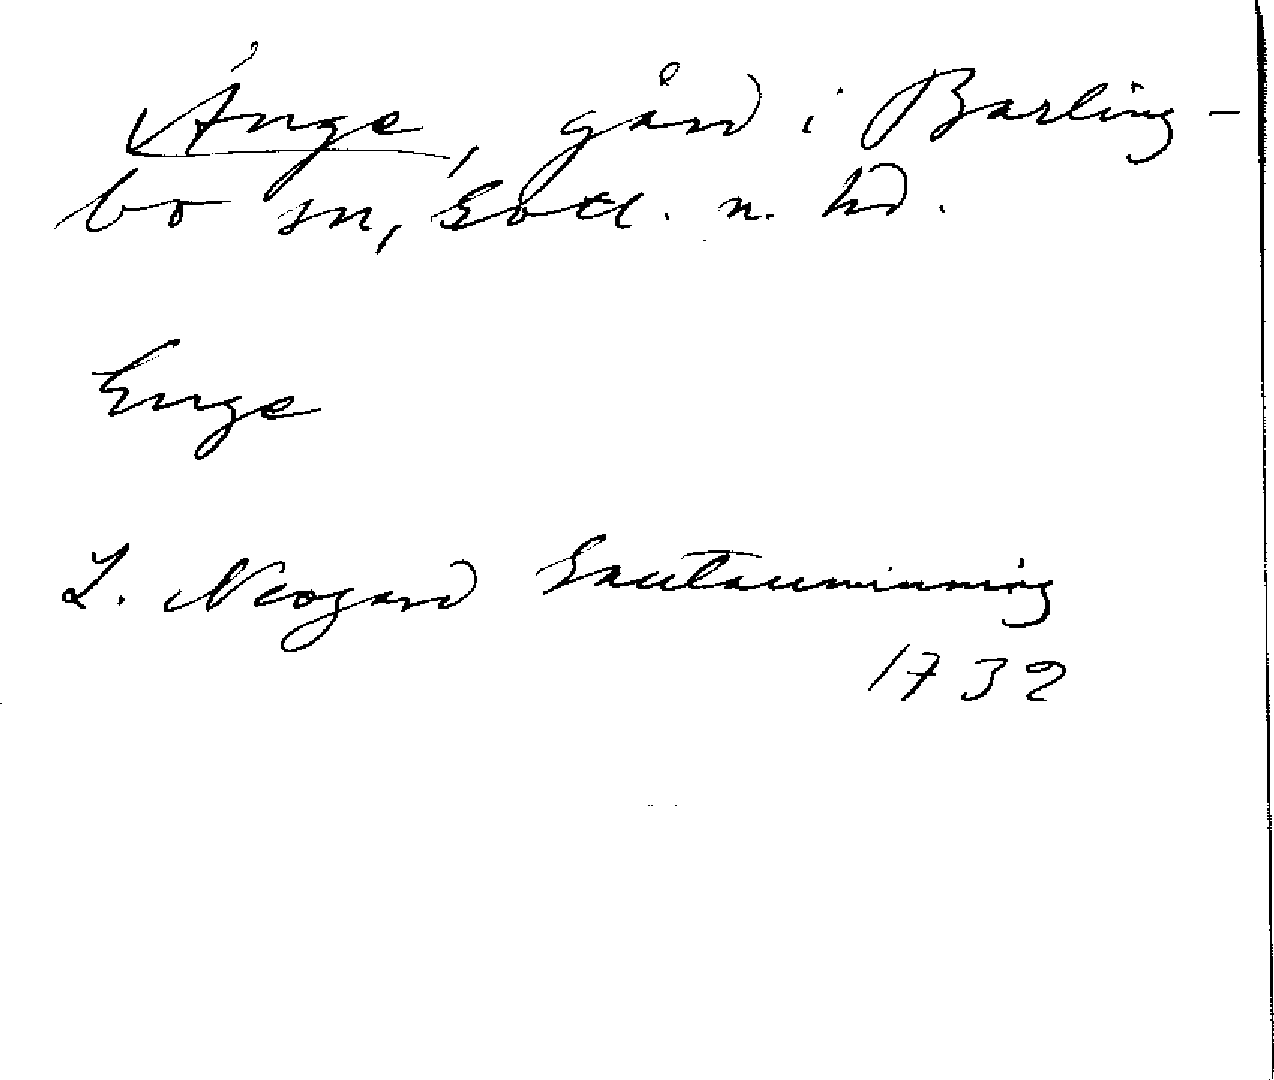 Änge, gård i Barling-
bo sn, Gotl. n. hd.
Enge
L. Neogard Gautauminning
1732